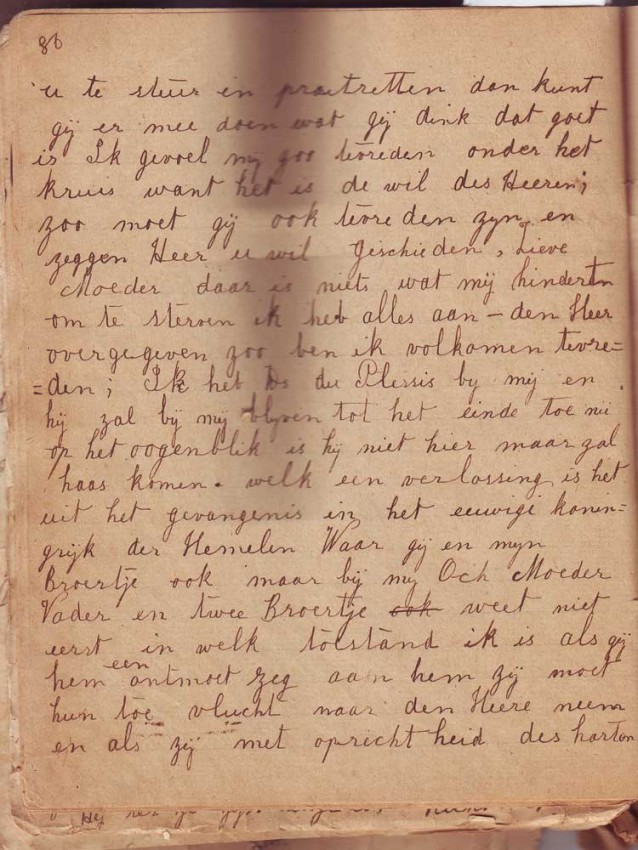 86
u te stuur en praetretten dan kunt
gij er mee doen wat gij dink dat goet
is Ik gevoel mij zoo tevreden onder het
kruis want het is de wil des Heeren;
zoo moet gij ook tevreden zyn en
zeggen Heer u wil Geschieden, Lieve
Moeder daar is niets wat mij hinderen
om te sterven ik heb alles aan – den Heer
overgegeven zoo ben ik volkomen tevre=
=den; Ik heb Ds du Plessis by mij en
hij zal bij mij blyven tot het einde toe nu
op het oogenblik is hij niet hier maar zal
haas komen. welk een verlossing is het
uit het gevangenis in het eeuwige konin=
grijk der Hemelen Waar gij en myn
Broertje ook maar bij my Och Moeder
Vader en twee Broertje ook weet niet
eerst in welk toestand ik is als gij
hem een antmoet zeg aan hem zij moet
hun toe vlucht naar den Heere neem
en als zij met oprechtheid des harton